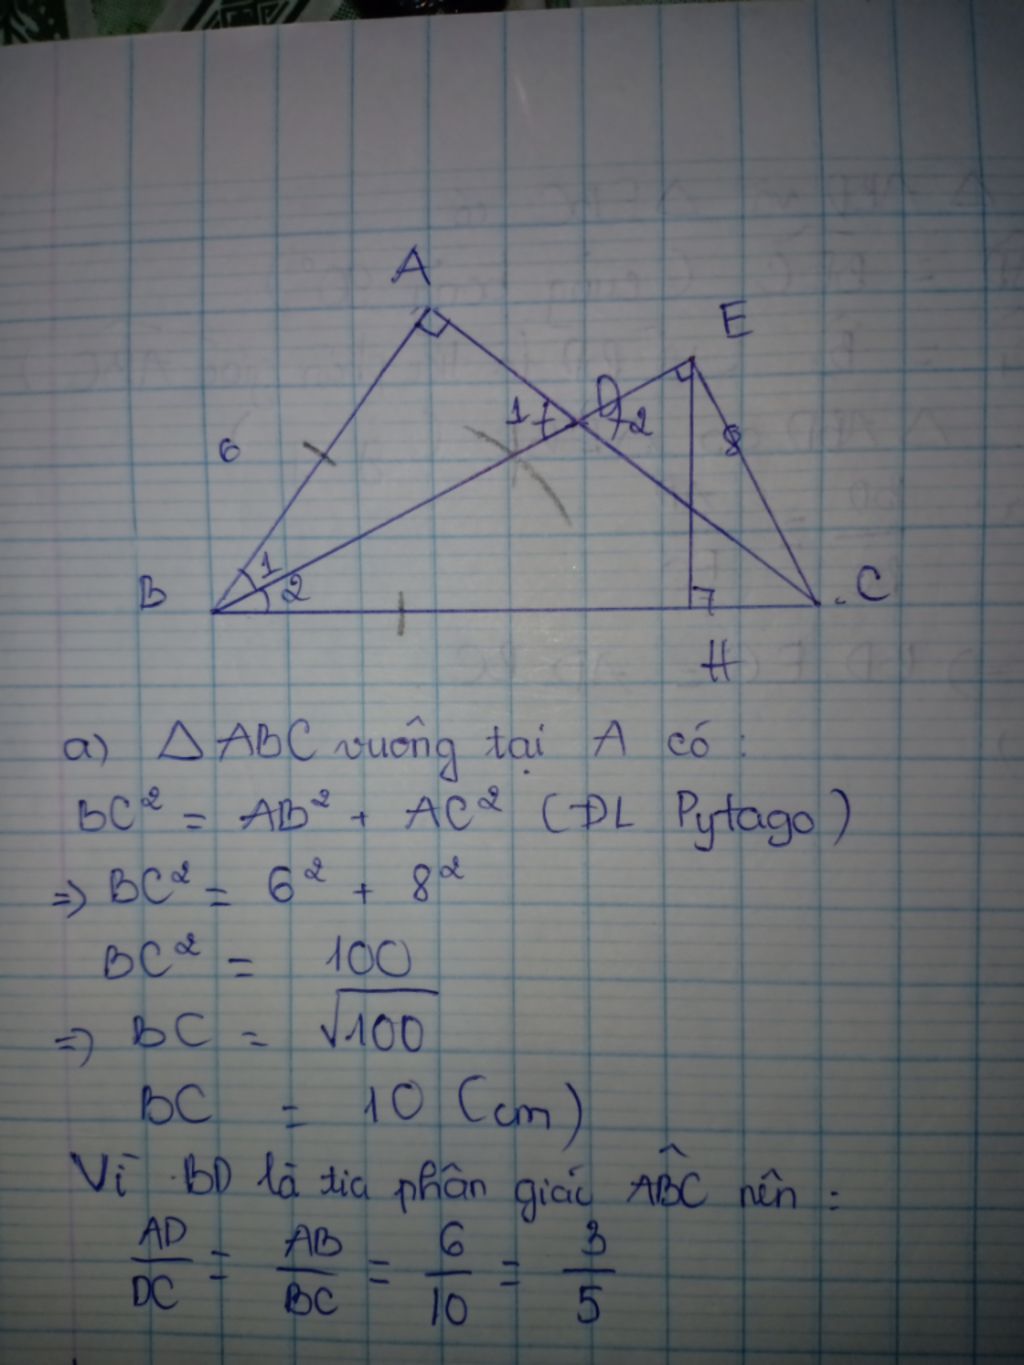 A
E
6
1
D
2
8
B
1
2
C
H
a) △ ABC vuông tại A có :
BC² = AB² + AC² (ĐL Pytago)
=> BC² = 6² + 8²
BC² = 100
=> BC = √100
BC = 10 (cm)
Vì BD là tia phân giác ABC nên :
AD/DC = AB/BC = 6/10 = 3/5